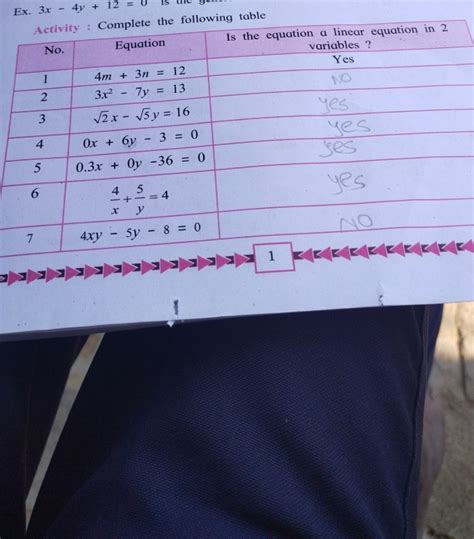 Ex. 3x - 4y + 12 = 0 is the
Activity : Complete the following table
No. Equation Is the equation a linear equation in 2 variables ?
1 4m + 3n = 12 Yes
2 3x² - 7y = 13 NO
3 √2 x - √5 y = 16 yes
4 0x + 6y - 3 = 0 yes
5 0.3x + 0y -36 = 0 yes
6 4/x + 5/y = 4 yes
7 4xy - 5y - 8 = 0 NO
1